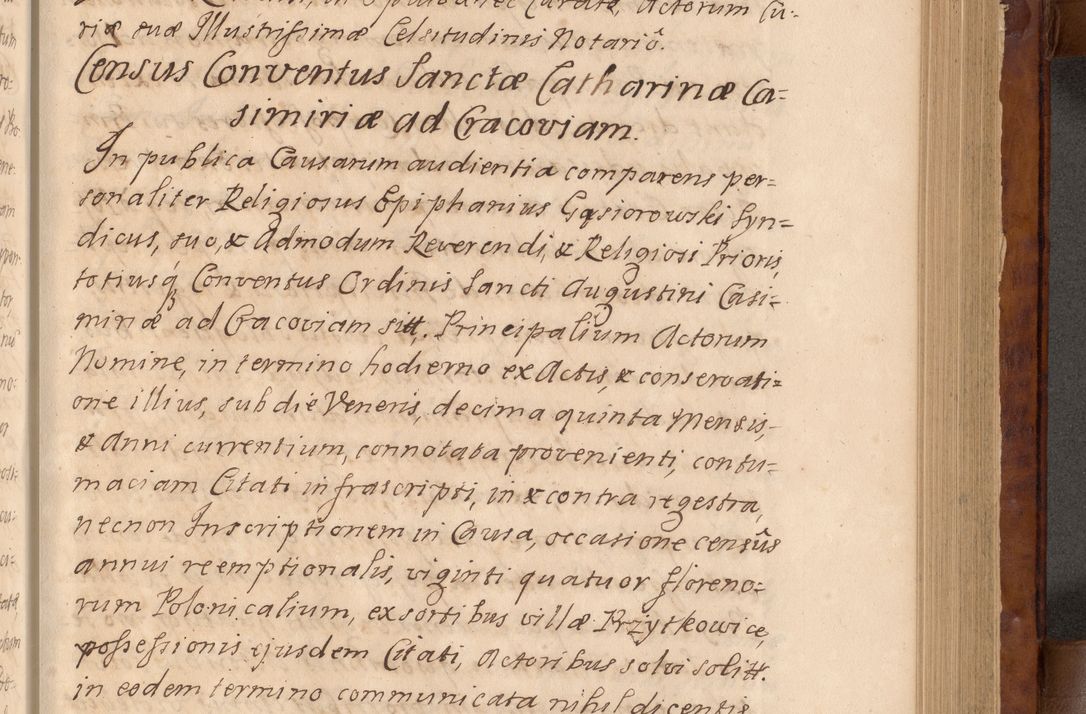 riæ suæ Illustrissimæ Celsitudinis Notariô.
Census Conventus Sanctæ Catharinæ Ca=
simiriæ ad Cracoviam.
In publica Causarum audientia comparens per=
sonaliter Religiosus Epiphanius Gąsiorowski Syn=
dicus, suo, & Admodum Reverendi, & Religiosi Prioris,
totiusq́ Conventus Ordinis Sancti Augustini Casi=
miriæ ad Cracoviam sitt. Principalium Actorum
Nomine, in termino hodierno ex Actis, & conservati=
one illius, sub die Veneris, decima quinta Mensis,
& Anni currentium, connotata provenienti, contu=
maciam Citati infrascripti, in & contra regestra,
necnon Inscriptionem in Causa, occasione censûs
annui reemptionalis, viginti quatuor floreno=
rum Polonicalium, ex sortibus villæ Przytkowice,
possessionis ejusdem Citati, Actoribus solvi solitt.
in eodem termino communicata nihil dicentis